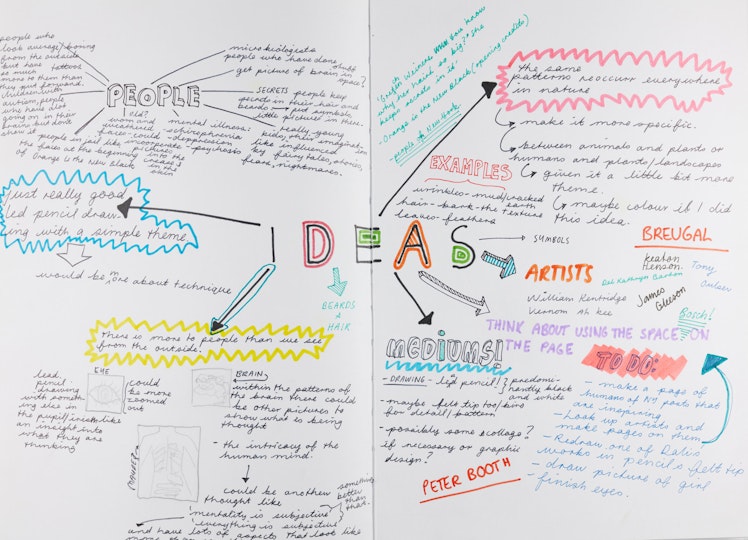 people who
look average/boring
from the outside
but have tattoos
so much
more to them than
they put forward.
children with
autism, people
who have alot
going on in their
brains but don't
show it
PEOPLE
microbiologists
people who have done
get picture of brain in space?
SECRETS people keep
secrets in their hair and
beards. weird symbols,
little pictures in there.
really young
kids, their imagination
like influenced
by fairy tales, stories,
fears, nightmares.
mental illness:
- schizophrenia
- depression
- psychosis
old?
worn and
weathered
faces - could
incorporate
into the
creases of
the skin
people in jail like
the faces at the beginning
of Orange is the New Black
just really good
led pencil draw-
ing with a simple theme.
would be more about technique
IDEAS
BEARDS
&
HAIR
There is more to people than we see
from the outside.
EYE
lead
pencil
drawing
with someth-
ing else in
the pupil/iris like
an insight into
what they are
thinking
could
be more
zoomed
out
BRAIN
within the patterns of
the brain there could
be other pictures to
show what is being
thought
- the intricacy of the
human mind.
could be another
thought like
something
better
than
that.
"mentality is subjective"
"everything is subjective"
and have lots of aspects that look like
"Gretchen Weiners
you know
why her hair is so big? she
keeps secrets in it"
- Orange is the New Black (opening credits)
- people of New York
the same
patterns reoccurr everywhere
in nature
make it more specific.
between animals and plants or
humans and plants/landscapes
given it a little bit more
theme.
maybe colour if I did
this idea.
EXAMPLES
wrinkles - mud/cracked earth
hair - bark - the texture
leaves - feathers
SYMBOLS
ARTISTS
BREUGAL
Keaton
Henson.
Del Kathryn Barton
Tony
William Kentridge
Vernon Ah Kee
James
Gleeson
Bosch!
THINK ABOUT USING THE SPACE ON
THE PAGE
MEDIUMS!
- DRAWING - led pencil!? predomi-
nantly black
and white
- maybe felt tip too/biro
for detail/pattern
- possibly some collage?
if necessary or graphic
design?
PETER BOOTH
TO DO:
- make a page of
humans of NY posts that
are inspiring
- Look up artists and
make pages on them
- Redraw one of Dali's
works in pencil & felt tip
- draw picture of girl
- finish eyes.